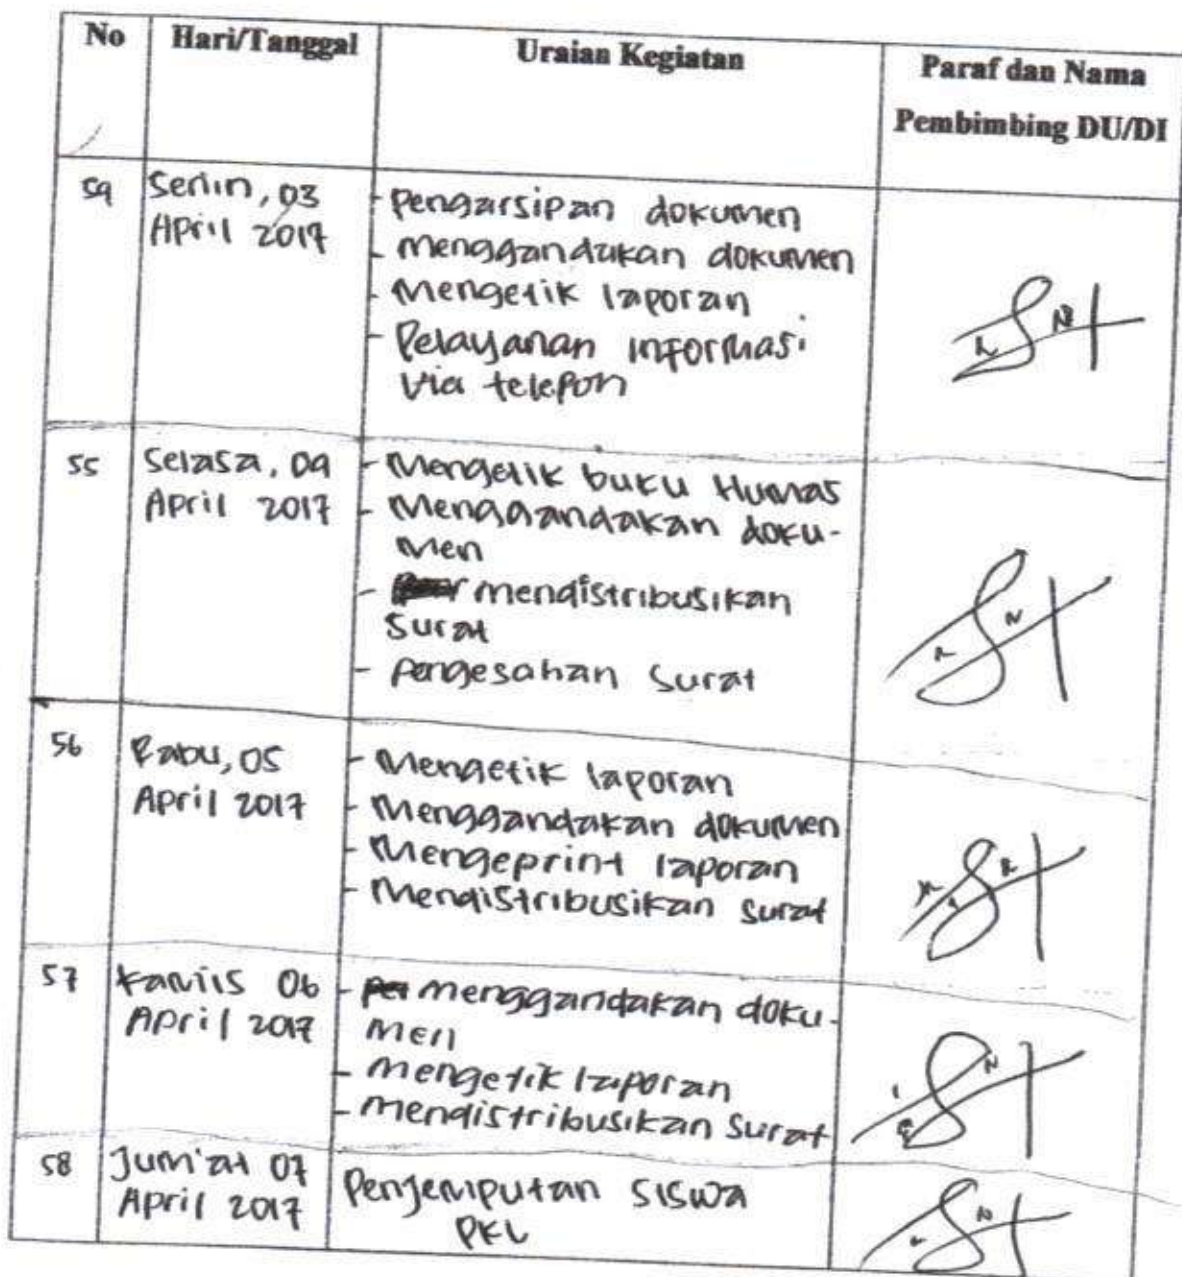 No
Hari/Tanggal
Uraian Kegiatan
Paraf dan Nama
Pembimbing DU/DI
54
Senin, 03
April 2017
- Pengarsipan dokumen
- Menggandakan dokumen
- Mengetik laporan
- Pelayanan informasi
via telepon
55
Selasa, 04
April 2017
- Mengetik buku Humas
- Menggandakan doku-
men
- mendistribusikan
surat
- Pengesahan surat
56
Rabu, 05
April 2017
- Mengetik laporan
- Menggandakan dokumen
- Mengeprint laporan
- Mendistribusikan surat
57
Kamis 06
April 2017
- menggandakan doku-
men
- mengetik laporan
- mendistribusikan surat
58
Jum'at 07
April 2017
Penjemputan siswa
PKL